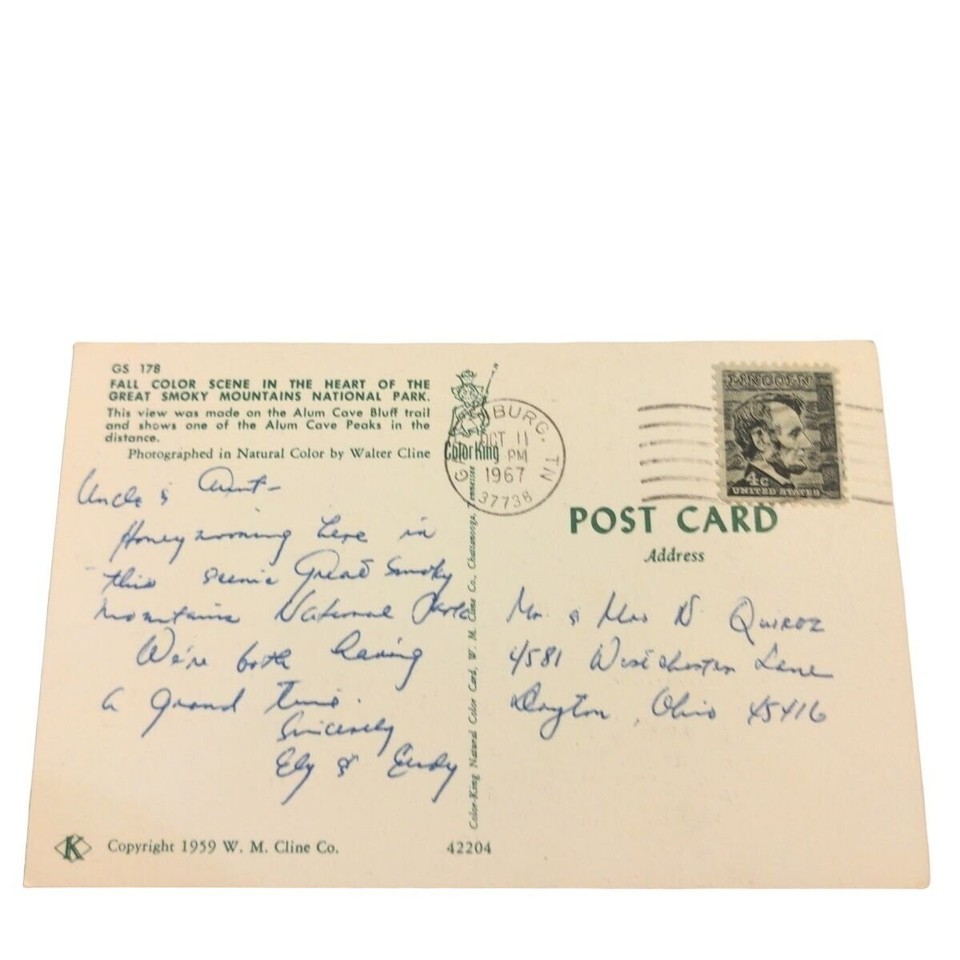 GS 178
FALL COLOR SCENE IN THE HEART OF THE
GREAT SMOKY MOUNTAINS NATIONAL PARK.
This view was made on the Alum Cave Bluff trail
and shows one of the Alum Cave Peaks in the
distance.
Photographed in Natural Color by Walter Cline
Uncle & Aunt-
Honeymooning here in
this scenic Great Smoky
Mountains National Park
We're both having
a grand time.
Sincerely
Ely &
Copyright 1959 W. M. Cline Co.
42204
ColorKing
Color-King Natural Color Card, W. M. Cline Co., Chattanooga, Tennessee
BURG, TN
OCT 11
PM
1967
37738
LINCOLN
4c
UNITED STATES
POST CARD
Address
Mr & Mrs N Quiroz
4581 Westchester Lane
Dayton, Ohio 45416